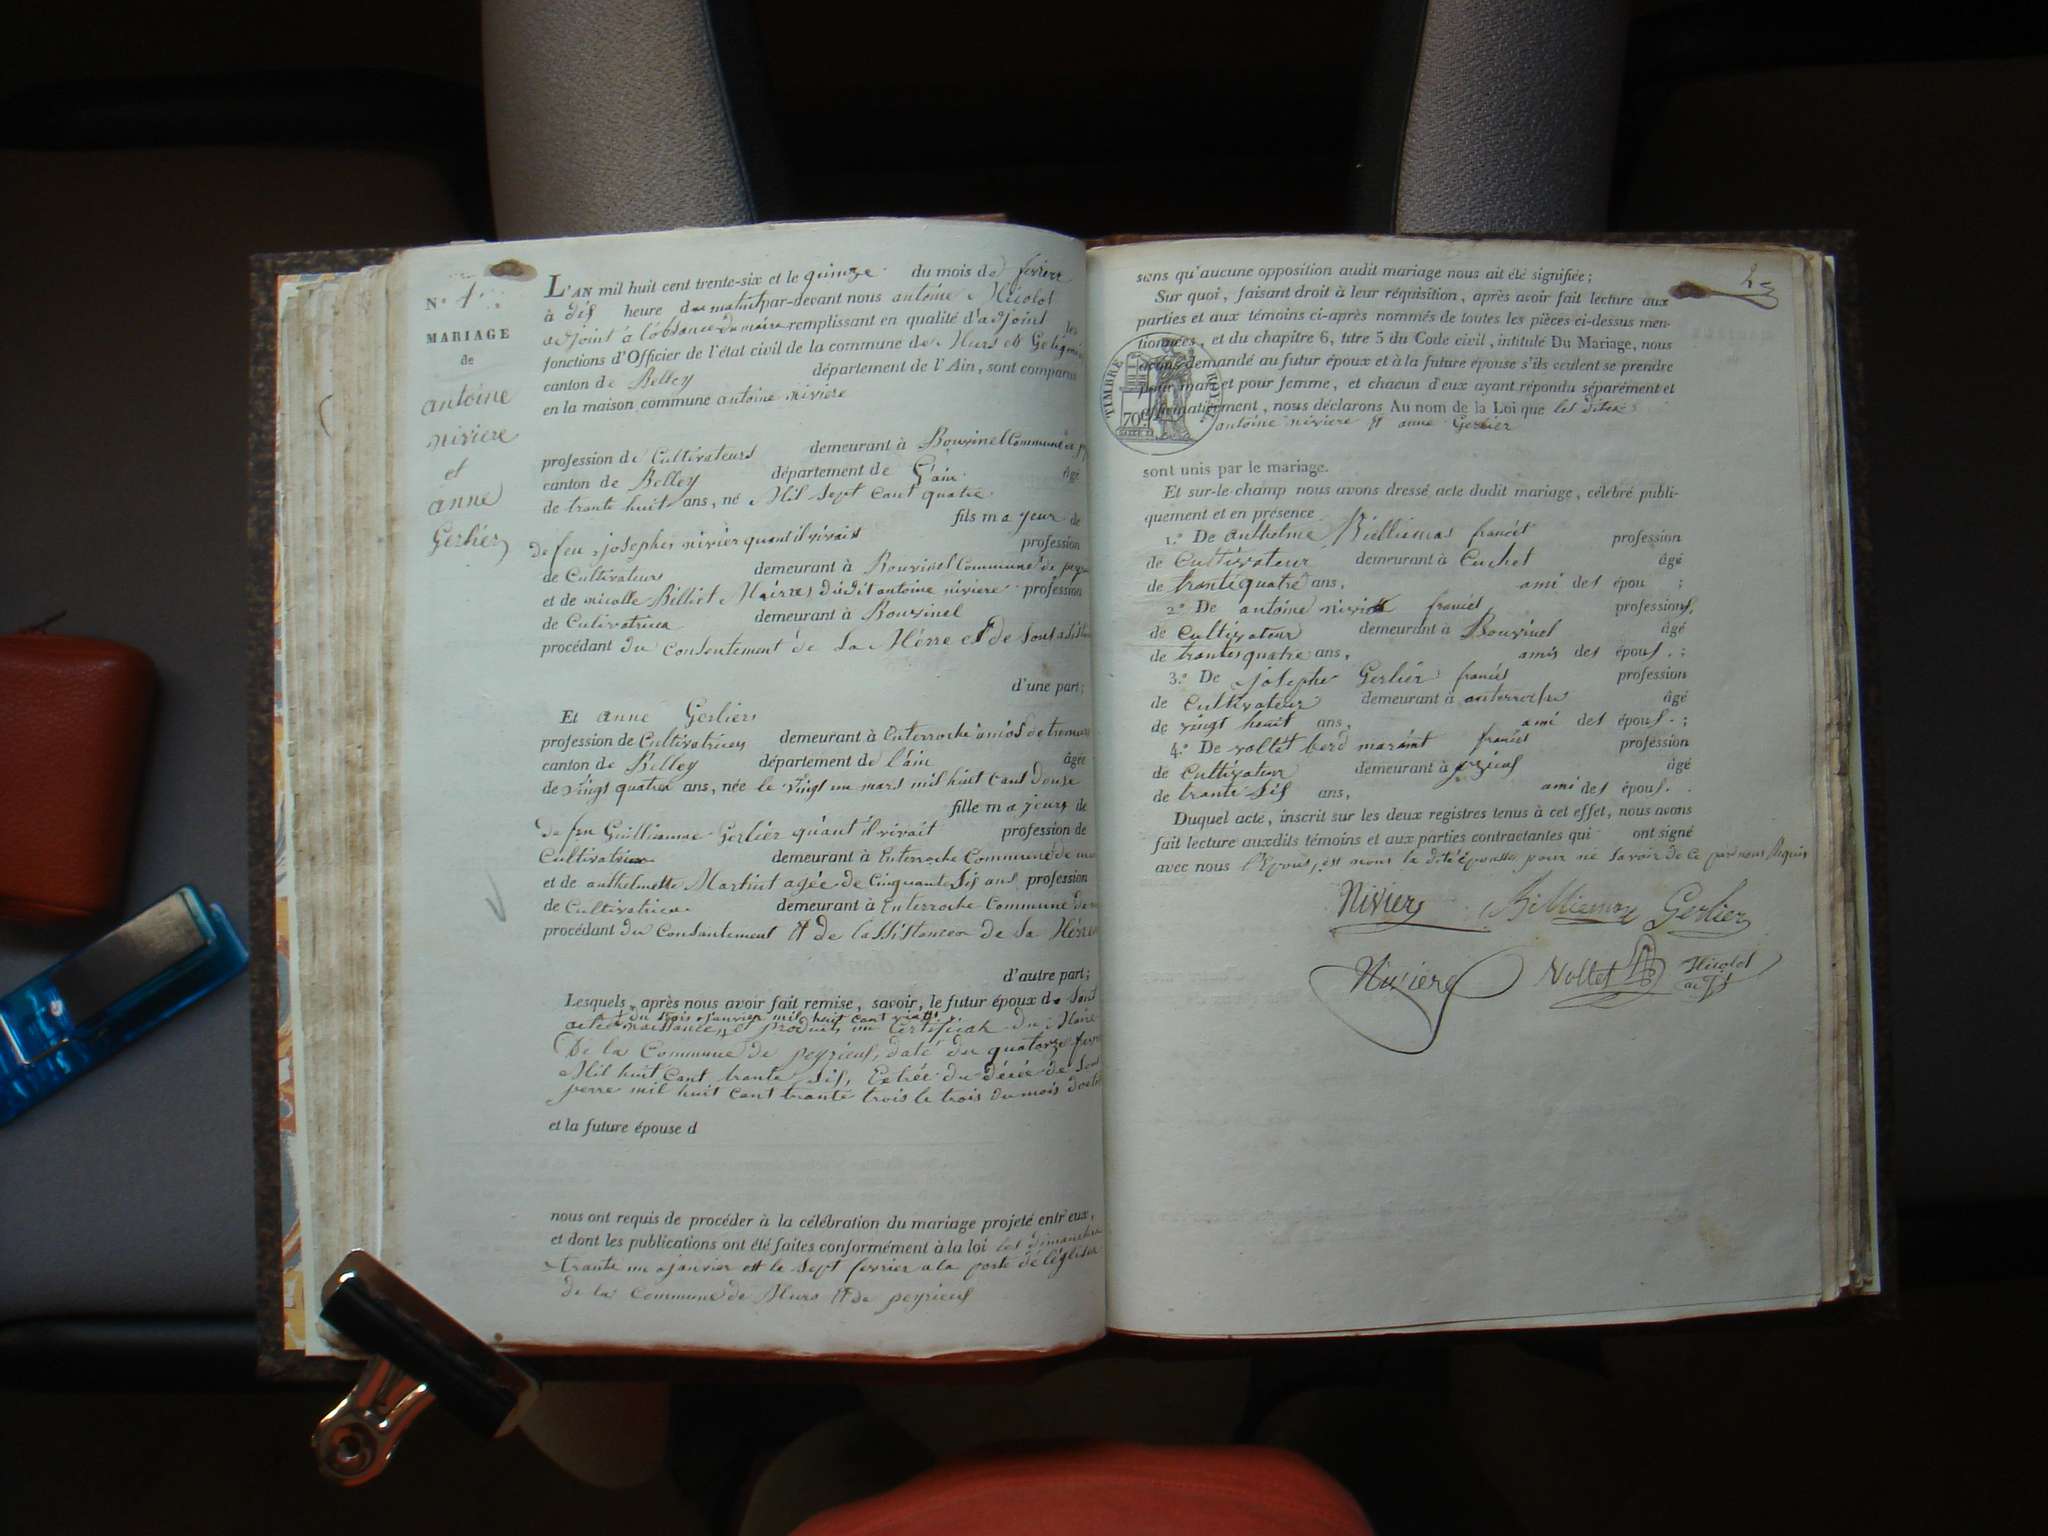 N° 1
MARIAGE
de
antoine
niviere
et
anne
Gerlier
L'AN mil huit cent trente-six et le quinze du mois de fevrier
à dis heure du matin par-devant nous antoine Nicolot
adjoint à l'obsance du maire remplissant en qualité d'adjoint les
fonctions d'Officier de l'état civil de la commune de Murs et
canton de Belley département de l'Ain, sont comparus
en la maison commune antoine niviere
profession de Cultivateurs demeurant à Bouvinel Commune de
canton de Belley département de L'ain âgé
de trante huit ans, né Mil sept cant quatre
fils majeur de
de feu josephe nivier quant il vivait profession
de Cultivateurs demeurant à Bouvinel Commune de
et de nicolle Billiet Mairre dudit antoine niviere profession
de Cultivatrica demeurant à Bouvinel
procédant du Consentement de Sa Mérre et de
d'une part;
Et anne Gerliers
profession de Cultivatrices demeurant à Enterroche
canton de Belley département de l'ain âgée
de vingt quatre ans, née le vingt un mars mil huit cant douse
fille majeurs de
de feu Guilliaume Gerlier quant il vivait profession de
Cultivatrice demeurant à Enterroche Commune de
et de anthelmette Martint agée de Cinquante Sis ans profession
de Cultivatrica demeurant à Enterroche Commune de
procédant du Consantement et de lassistance de Sa Mérre
d'autre part;
Lesquels, après nous avoir fait remise, savoir, le futur époux de Sont
du trois janvier mil huit cant
acte naissance, et produit un Certificat du Maire
De la Commune de peyrieus, daté du quatorze
Mil huit cant trante Sis, Extrée du décée de Sont
perre mil huit cant trante trois le trois du mois
et la future épouse d
nous ont requis de procéder à la célébration du mariage projeté entr'eux,
et dont les publications ont été faites conformément à la loi les dimanches
trante un janvier est le Sept fevrier a la porte de léglise
de la Commune de Murs et de peyrieus
sans qu'aucune opposition audit mariage nous ait été signifiée;
Sur quoi, faisant droit à leur réquisition, après avoir fait lecture aux
parties et aux témoins ci-après nommés de toutes les pièces ci-dessus men-
tionnées, et du chapitre 6, titre 5 du Code civil, intitulé Du Mariage, nous
avons demandé au futur époux et à la future épouse s'ils veulent se prendre
pour mari et pour femme, et chacun d'eux ayant répondu séparément et
affirmativement, nous déclarons Au nom de la Loi que les dites
antoine niviere et anne Gerlier
TIMBRE ROYAL
70c
sont unis par le mariage.
Et sur-le-champ nous avons dressé acte dudit mariage, célébré publi-
quement et en présence
1.° De anthelme Billiemas francés profession
de Cultivateur demeurant à Cuchet âgé
de trante quatre ans, ami des épou ;
2.° De antoine francés profession
de Cultivateur demeurant à Bouvinel âgé
de trante quatre ans, amis des épous. ;
3.° De josephe Gerlier francés profession
de Cultivateur demeurant à anterroche âgé
de vingt hauit ans, ami des épous. ;
4.° De vollet francés profession
de Cultivateur demeurant à âgé
de trante Sis ans, ami des épous.
Duquel acte, inscrit sur les deux registres tenus à cet effet, nous avons
fait lecture auxdits témoins et aux parties contractantes qui ont signé
avec nous l'Epous, est nous la dite épouse pour ne Savoir de ce par nous Requis
Nivier Billiemas Gerlier
Niviere Vollet Nicolot
adjt